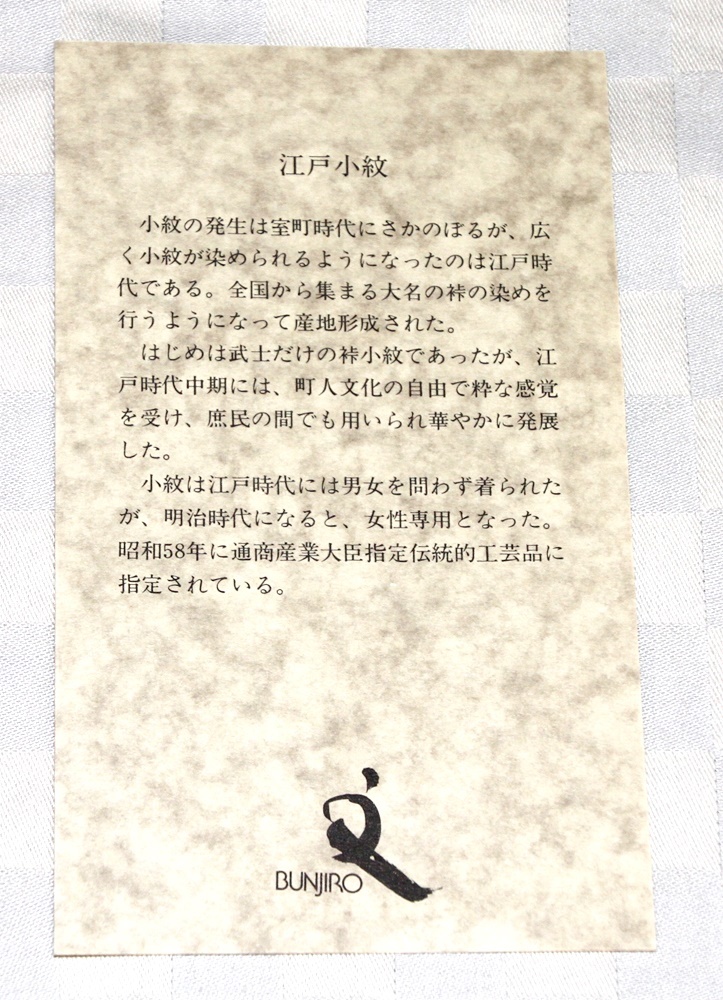 江戸小紋
小紋の発生は室町時代にさかのぼるが、広
く小紋が染められるようになったのは江戸時
代である。全国から集まる大名の裃の染めを
行うようになって産地形成された。
はじめは武士だけの裃小紋であったが、江
戸時代中期には、町人文化の自由で粋な感覚
を受け、庶民の間でも用いられ華やかに発展
した。
小紋は江戸時代には男女を問わず着られた
が、明治時代になると、女性専用となった。
昭和58年に通商産業大臣指定伝統的工芸品に
指定されている。
文
BUNJIRO